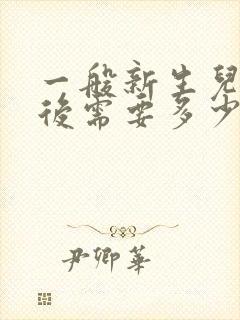 一般新生兒
後需要多少
尹卿華